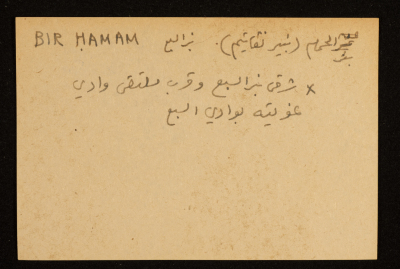 BIR HAMAM بئر الحمام (بئير نقاتيم). بئر السبع
x شرقي بئر السبع وقرب ملتقى وادي
غويته بوادي السبع